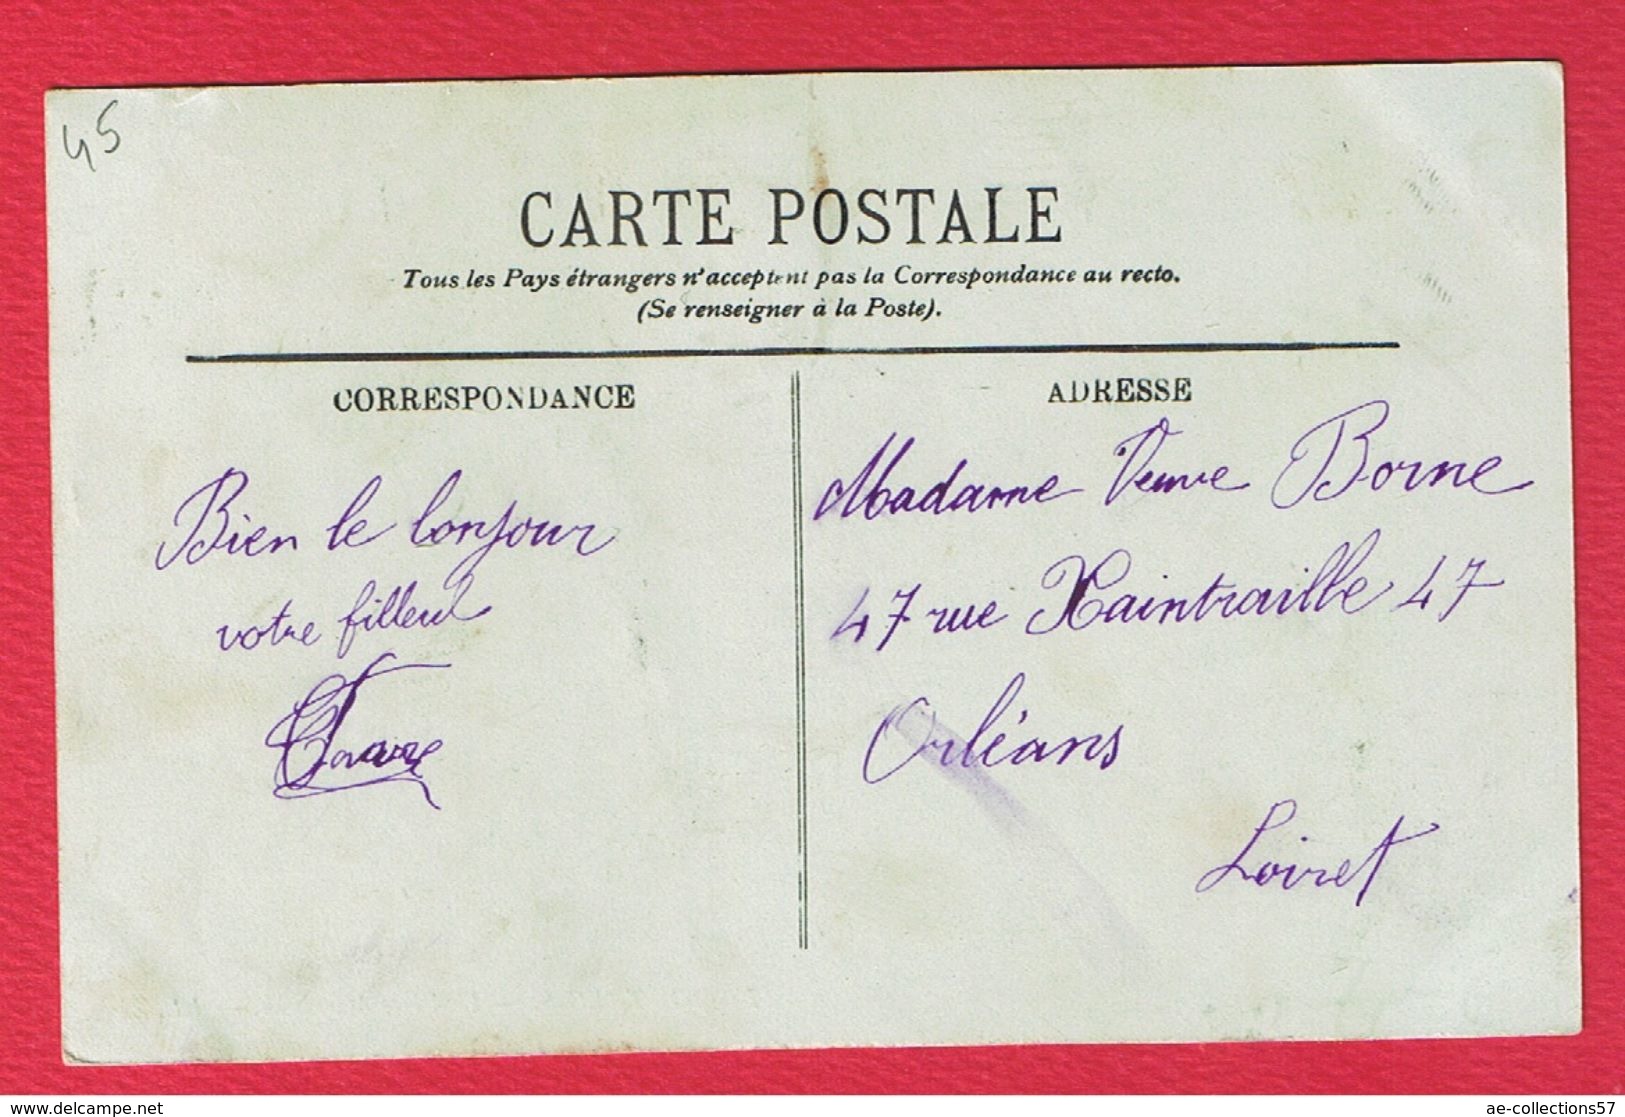 45
CARTE POSTALE
Tous les Pays étrangers n'acceptent pas la Correspondance au recto.
(Se renseigner à la Poste).
CORRESPONDANCE
Bien le bonjour
votre filleul
ADRESSE
Madame Veuve Borne
47 rue Xaintraille 47
Orléans
Loiret
delcampe.net
ae-collections57